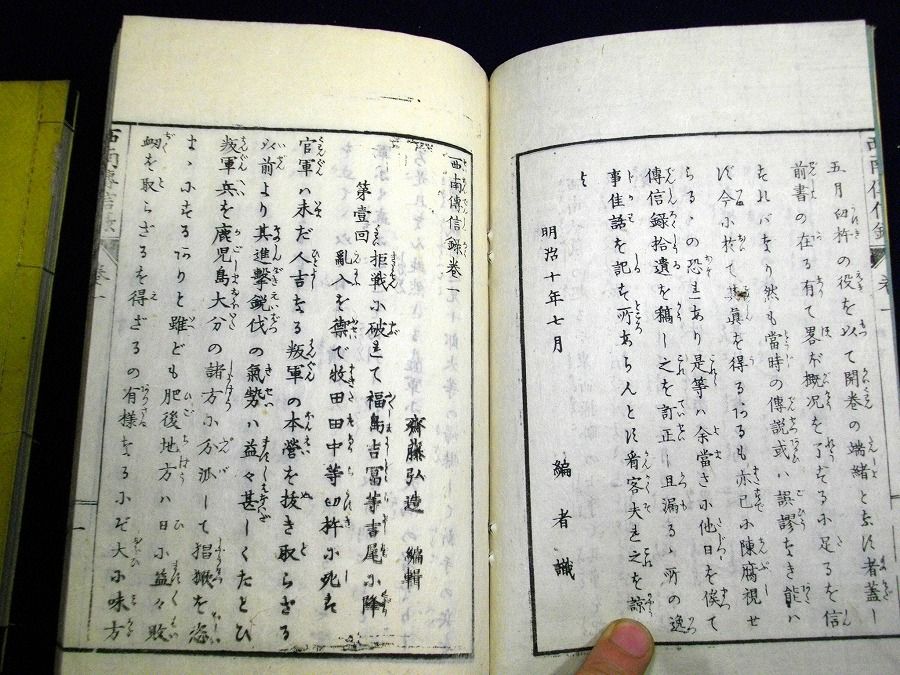 五月臼杵の役を以て開巻の端緒と為す者蓋し
前書の在る有て畧ぼ概况を了するに足るを信
ずれバなり然も當時の傳説或ハ誤謬なき能ハ
ず今に於て其眞を得るあるも亦已に陳腐視せ
らるゝの恐れあり是等ハ余當さに他日を俟て
傳信録拾遺を稿し之を訂正し且漏るゝ所の逸
事佳話を記す所あらんとす看客夫れ之を諒
せよ
明治十年七月
編者識
西南傳信録巻一
齋藤弘造 編輯
第壹回
拒戦に破れて福島吉冨等吉尾に降
亂入を禦で牧田田中等臼杵に死す
官軍ハ未だ人吉なる叛軍の本營を抜き取らざる
以前より其進撃鋭伐の氣勢ハ益々甚しくたとひ
叛軍兵を鹿児島大分の諸方に万派して猖獗を恣
まゝにするありと雖ども肥後地方ハ日に益々敗
衂を取らざるを得ざるの有様なるにぞ大に味方